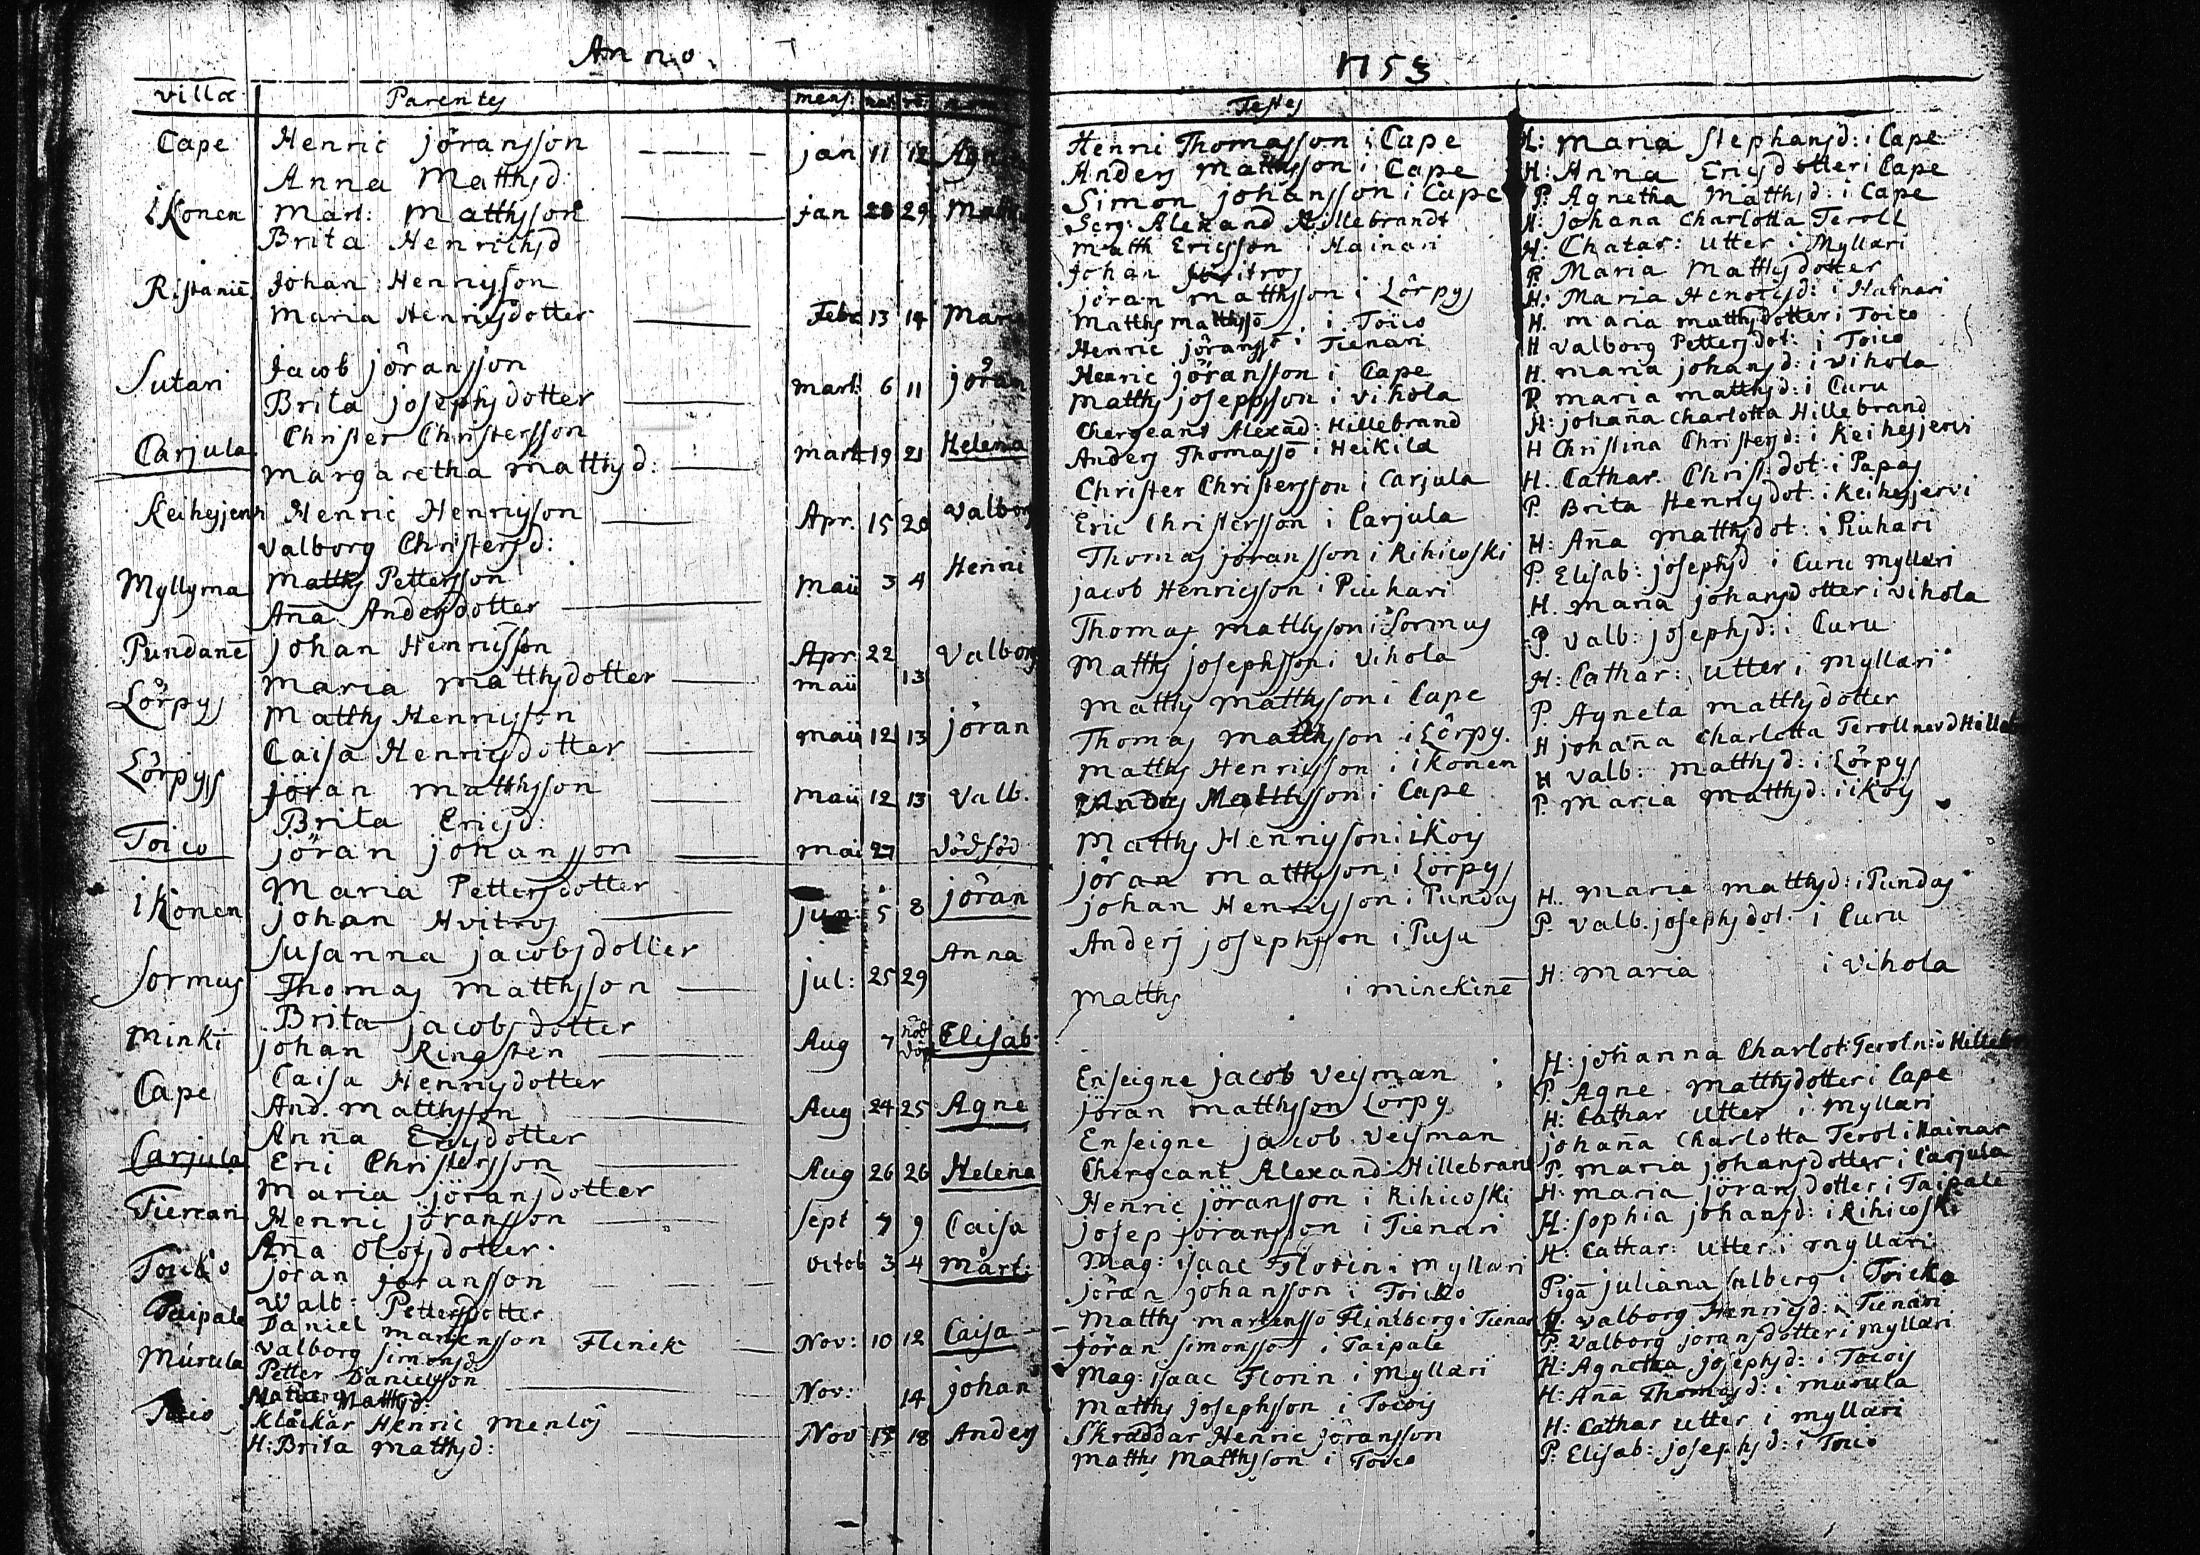 Anno.
1753
villæ Parentes mens: Testes
Cape Henric jöransson jan 11 12 Agne
Anna Matthsd:
ikonen Mart: Matthsson jan 28 29
Brita Henrichsd
Ristanie Johan Henricsson
Maria Henricsdotter Febr 13 14 Maria
Sutari Jacob jöransson
Brita josephsdotter Mart: 6 11 jöran
Carjula Christer Christersson
Margaretha Matthsd: Mart 19 21 Helena
Keihesjerfvi Henric Henricsson Apr. 15 20 Valborg
Valborg Christersd:
Myllyma Matths Pettersson Maii 3 4 Henric
Aña Andersdotter
Pundanē johan Henricsson Apr 22 Valborg
Maria Matthsdotter maii 13
Lörpys Matths Henricsson
Caisa Henricsdotter maii 12 13 jöran
Lörpys jöran Matthsson maii 12 13 Valb.
Brita Ericsd:
Toico jöran johansson mai 27 dödföd
Maria Pettersdotter
ikonen johan Hvitros jun: 5 8 jöran
Susanna jacobsdotter Anna
Sormus Thomas Matthsson jul: 25 29
Brita jacobsdotter
Minki johan Ringsten Aug 7 nöd döpt Elisab:
Caisa Henricsdotter
Cape And. Matthsson Aug 24 25 Agne
Anna Ericsdotter
Carjula Eric Christersson Aug 26 26 Helena
Maria jöransdotter
Tienari Henric jöransson Sept 7 9 Caisa
Aña Olofsdotter
Toicko jöran johansson octob 3 4 Mårt:
Valb: Pettersdotter
Taipale Daniel Mårtensson Flinck Nov: 10 12 Caisa
Valborg Simonsd
Murula Petter Danielsson Nov: 14 johan
Maria Matthsd:
Toico Klåckar Henric Menlös Nov 15 18 Anders
H: Brita Matthsd:
Henric Thomasson i Cape H: Maria Stephansd: i Cape
Anders Matthsson i Cape H: Anna Ericsdotter i Cape
Simon johansson i Cape P. Agnetha Matthsd: i Cape
Serg: Alexand Hillebrandt H: johana Charlotta Teroll
Matth Ericsson i Hainari H: Chatar: Utter i Myllari
Johan Hvitros P. Maria Matthsdotter
jöran Matthsson i Lörpys H: Maria Henricsd: i Hainari
Matths Matthssō i Toico H. Maria Matthsdotter i Toico
Henric jöranssō i Tienari H Valborg Pettersdot: i Toico
Henric jöransson i Cape H. Maria johansd: i Vihola
Matths josephsson i Vihola P Maria Matthsd: i Curu
Chergeant Alexād: Hillebrand H: johaña Charlotta Hillebrand
Anders Thomassō i Heikilä H Christina Christersd: i Keihesjervi
Christer Christersson i Carjula H. Cathar. Christ.dot: i Papas
Eric Christersson i Carjula P. Brita Henricsdot: i Keihesjervi
Thomas jöransson i Rihicoski H: Aña Matthsdot: i Piuhari
jacob Henricsson i Piuhari P. Elisab: josephsd i Curu Myllari
Thomas Matthsson i Sormus H. Maria johansdotter i Vihola
Matths josephsson i Vihola P. Valb: josephsd: i Curu
Matths Matthsson i Cape H: Cathar: Utter i Myllari
Thomas Matthsson i Lörpy. P. Agneta Matthsdotter
Matths Henricsson i ikonen H johaña Charlotta Teroll
Anders Matthsson i Cape H Valb: Matthsd: i Lörpys
Matths Henricsson i ikois P. Maria Matthsd: i ikois
jöran Matthsson i Lörpys
johan Henricsson i Pundas H. Maria Matthsd: i Pundas
Anders josephsson i Pusu P. Valb. josephsdot. i Curu
Matths i Minckinē H: Maria i Vihola
Enseigne jacob Veisman H: johanna Charlot: Terol
jöran Matthsson Lörpy P. Agne Matthsdotter i Cape
Enseigne jacob Veisman H: Cathar Utter i Myllari
Chergeant Alexand: Hillebrand johaña Charlotta Terol i Hainar
Henric jöransson i Rihicoski P. Maria johansdotter i Carjula
josep jöransson i Tienari H: Maria jöransdotter i Taipale
Mag: isaac Florin i Myllari H: Sophia johansd: i Rihicoski
jöran johansson i Toicko H: Cathar: Utter i Myllari
Matths Mårtenssō Flintberg i Tienari Piga juliana Salberg i Toicko
jöran Simonsso i Taipale H. Valborg Henricsd: i Tienari
Mag: isaac Florin i Myllari P. Valborg jöransdotter i Myllari
Matths josephsson i Tocois H: Agnetha josephsd: i Tocois
Skräddar Henric jöransson H: Aña Thomasd: i Murula
Matths Matthsson i Toico H: Cathar Utter i Myllari
P: Elisab: josephsd: i Toico